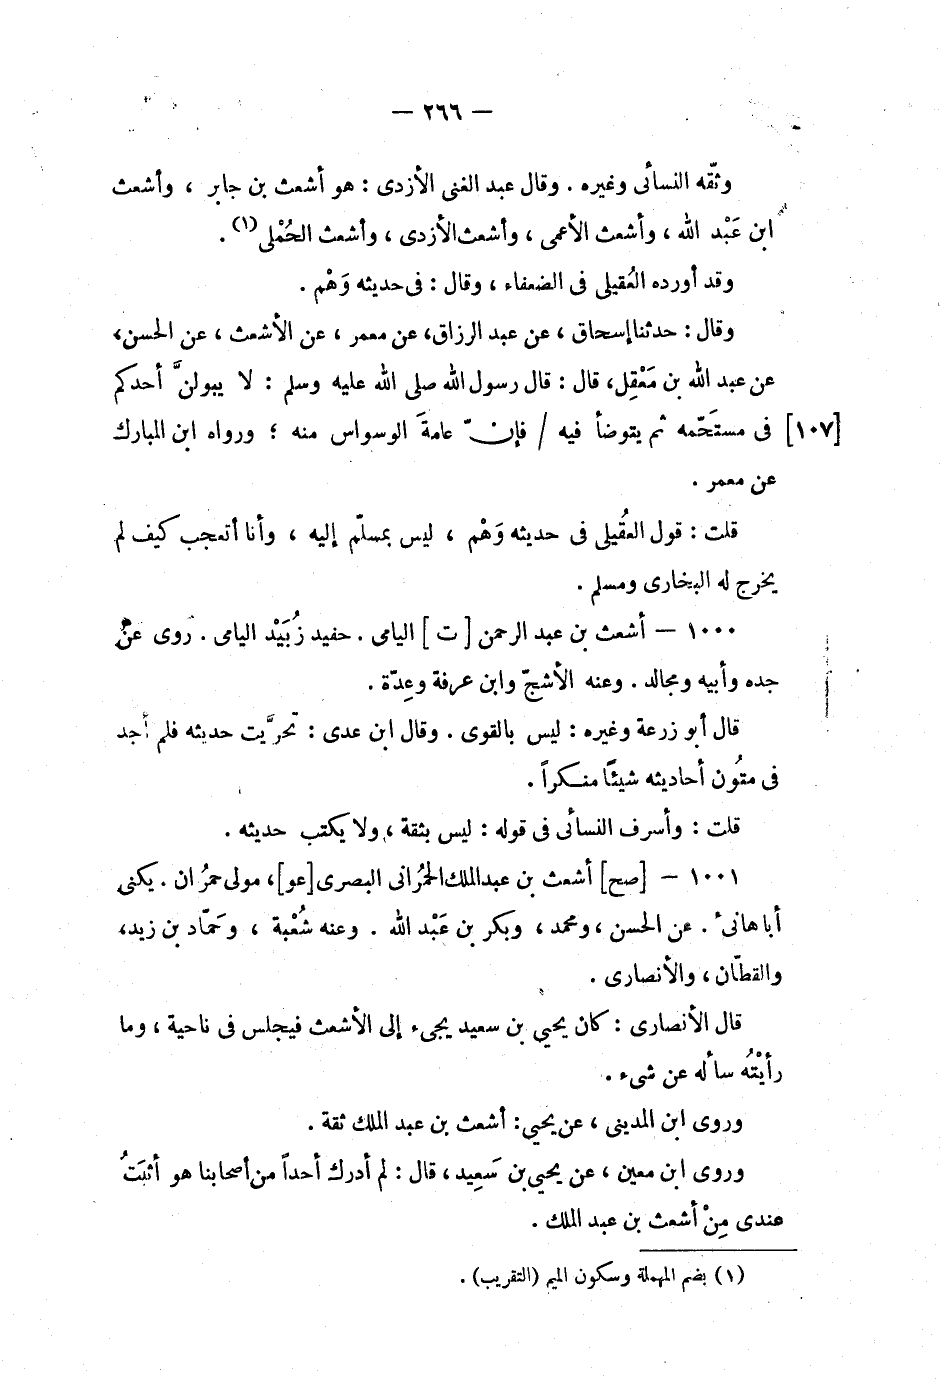 — ٢٦٦ —
وثّقه النسائى وغيره . وقال عبد الغنى الأزدى : هو أشعث بن جابر ، وأشعث
ابن عَبْد الله ، وأشعث الأعمى ، وأشعث الأزدى ، وأشعث الحُمْلى(١) .
وقد أورده العُقيلى فى الضعفاء ، وقال : فى حديثه وَهْم .
وقال : حدثنا إسحاق ، عن عبد الرزاق، عن معمر ، عن الأشعث ، عن الحسن،
عن عبد الله بن مَعْقِل، قال : قال رسول الله صلى الله عليه وسلم : لا يبولنَّ أحدكم
[١٠٧] فى مستَحَمّه ثم يتوضأ فيه / فإنّ عامةَ الوسواس منه ؛ ورواه ابن المبارك
عن معمر .
قلت : قول العُقيلى فى حديثه وَهْم ، ليس بمسلّم إليه ، وأنا أتعجب كيف لم
يخرج له البخارى ومسلم .
١٠٠٠ — أشعث بن عبد الرحمن [ ت ] اليامى . حفيد زُبَيْد اليامى . روى عن
جده وأبيه ومجالد . وعنه الأشجّ وابن عرفة وعِدّة .
قال أبو زرعة وغيره : ليس بالقوى . وقال ابن عدى : تحرَّيت حديثه فلم أجد
فى متُون أحاديثه شيئًا منكراً .
قلت : وأسرف النسائى فى قوله : ليس بثقة ، ولا يكتب حديثه .
١٠٠١ — [صح] أشعث بن عبدالملك الحُمْرانى البصرى [عو]، مولى حمرُان . يكنى
أبا هانئ . عن الحسن ، ومحمد ، وبكر بن عَبْد الله . وعنه شُعْبة ، وحَمّاد بن زيد،
والقطّان ، والأنصارى .
قال الأنصارى : كان يحيى بن سعيد يجىء إلى الأشعث فيجلس فى ناحية ، وما
رأيْتُه سأله عن شىء .
وروى ابن المدينى ، عن يحيى: أشعث بن عبد الملك ثقة .
وروى ابن معين ، عن يحيى بن سَعِيد ، قال : لم أدرك أحداً من أصحابنا هو أثبَتُ
عندى مِنْ أشعث بن عبد الملك .
(١) بضم المهملة وسكون الميم (التقريب) .